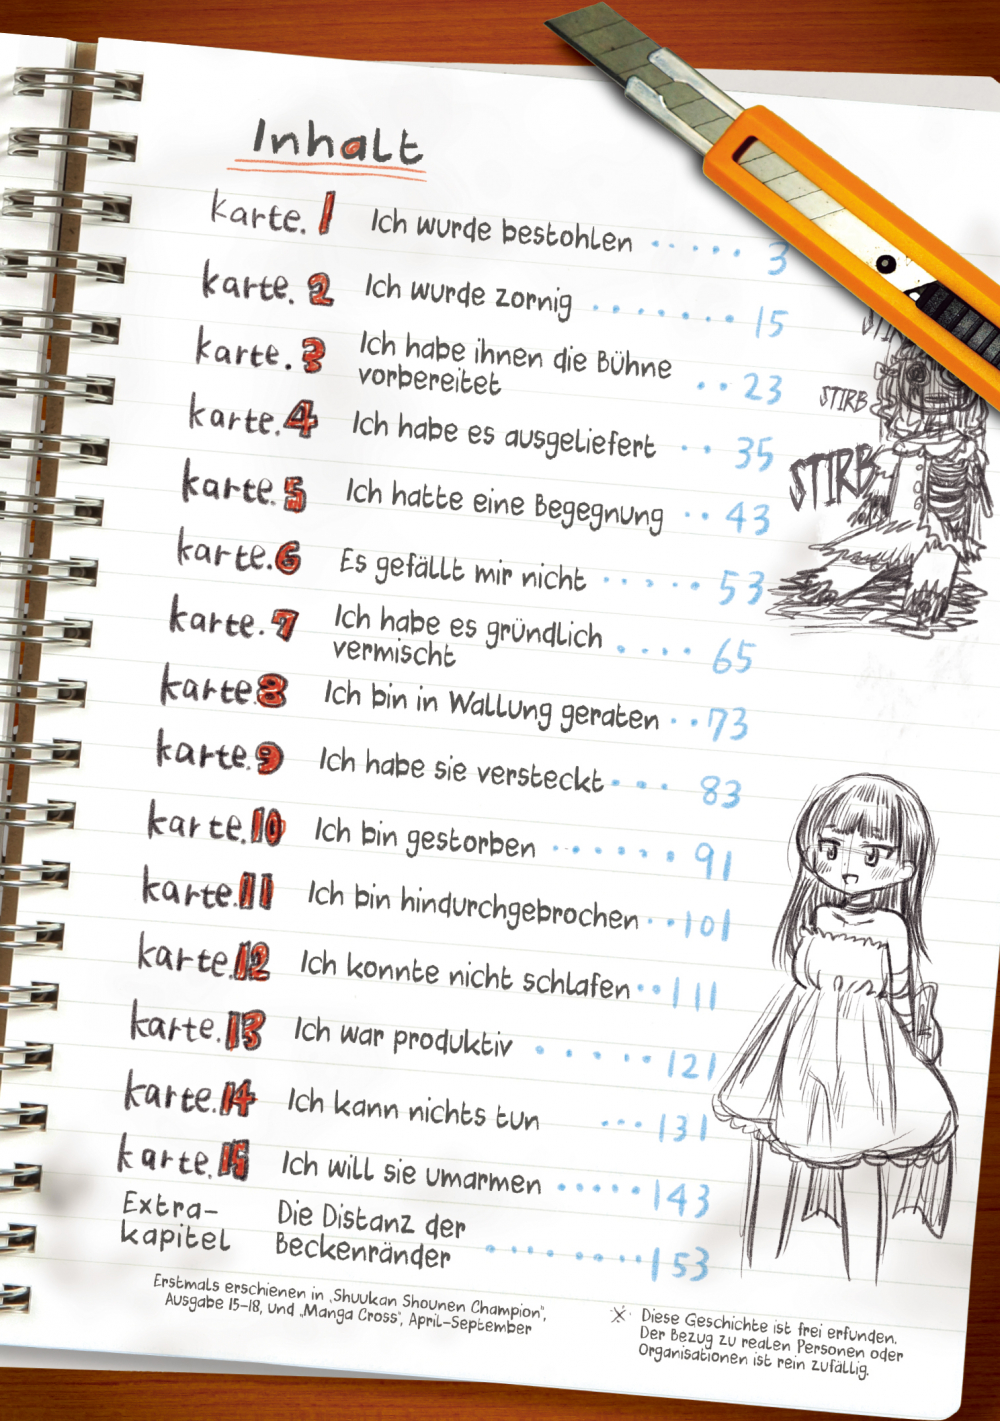 Inhalt
karte.1 Ich wurde bestohlen ····· 3
karte.2 Ich wurde zornig ········ 15
karte.3 Ich habe ihnen die Bühne
vorbereitet ·· 23
karte.4 Ich habe es ausgeliefert ·· 35
karte.5 Ich hatte eine Begegnung ·· 43
karte.6 Es gefällt mir nicht ······ 53
karte.7 Ich habe es gründlich
vermischt ···· 65
karte.8 Ich bin in Wallung geraten ·· 73
karte.9 Ich habe sie versteckt ··· 83
karte.10 Ich bin gestorben ······· 91
karte.11 Ich bin hindurchgebrochen ·· 101
karte.12 Ich konnte nicht schlafen ·· 111
karte.13 Ich war produktiv ····· 121
karte.14 Ich kann nichts tun ··· 131
karte.15 Ich will sie umarmen ····· 143
Extra-
kapitel
Die Distanz der
Beckenränder ········ 153
STIRB
STIRB
Erstmals erschienen in „Shuukan Shounen Champion“,
Ausgabe 15–18, und „Manga Cross“, April–September
※ Diese Geschichte ist frei erfunden.
Der Bezug zu realen Personen oder
Organisationen ist rein zufällig.